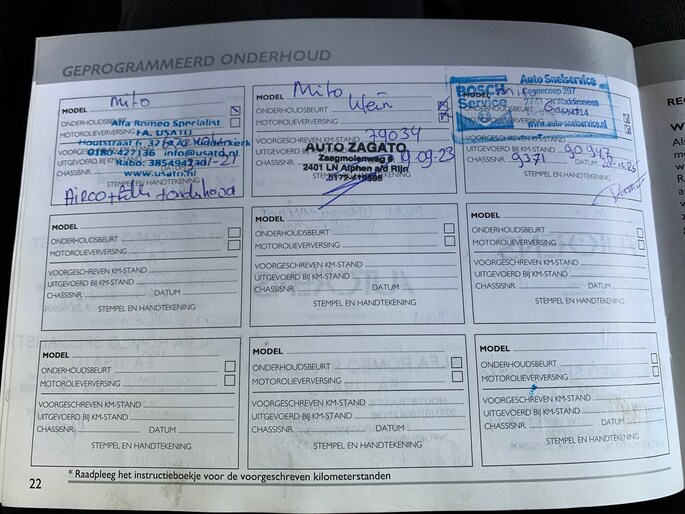 GEPROGRAMMEERD ONDERHOUD
MODEL Mito
ONDERHOUDSBEURT
MOTOROLIEVERVERSING
Alfa Romeo Specialist
FA. USATO
Houtstraat 6,
0180-422136 info@usato.nl
Rabo:
www.usato.nl
VOORGESCHREVEN KM-STAND
UITGEVOERD BIJ KM-STAND
CHASSISNR. DATUM
STEMPEL EN HANDTEKENING
Airco + + onderhoud
MODEL Mito
ONDERHOUDSBEURT Klein
MOTOROLIEVERVERSING
VOORGESCHREVEN KM-STAND 79034
UITGEVOERD BIJ KM-STAND
AUTO ZAGATO
Zaagmolenweg
2401 LN Alphen a/d Rijn
0172-
19-09-23
STEMPEL EN HANDTEKENING
Auto Snelservice
BOSCH
Service
397
Waddinxveen
www.auto-snelservice.nl
VOORGESCHREVEN KM-STAND
UITGEVOERD BIJ KM-STAND 90947
CHASSISNR. 9371 DATUM
STEMPEL EN HANDTEKENING
MODEL
ONDERHOUDSBEURT
MOTOROLIEVERVERSING
VOORGESCHREVEN KM-STAND
UITGEVOERD BIJ KM-STAND
CHASSISNR. DATUM
STEMPEL EN HANDTEKENING
MODEL
ONDERHOUDSBEURT
MOTOROLIEVERVERSING
VOORGESCHREVEN KM-STAND
UITGEVOERD BIJ KM-STAND
CHASSISNR. DATUM
STEMPEL EN HANDTEKENING
MODEL
ONDERHOUDSBEURT
MOTOROLIEVERVERSING
VOORGESCHREVEN KM-STAND
UITGEVOERD BIJ KM-STAND
CHASSISNR. DATUM
STEMPEL EN HANDTEKENING
MODEL
ONDERHOUDSBEURT
MOTOROLIEVERVERSING
VOORGESCHREVEN KM-STAND
UITGEVOERD BIJ KM-STAND
CHASSISNR. DATUM
STEMPEL EN HANDTEKENING
MODEL
ONDERHOUDSBEURT
MOTOROLIEVERVERSING
VOORGESCHREVEN KM-STAND
UITGEVOERD BIJ KM-STAND
CHASSISNR. DATUM
STEMPEL EN HANDTEKENING
MODEL
ONDERHOUDSBEURT
MOTOROLIEVERVERSING
VOORGESCHREVEN KM-STAND
UITGEVOERD BIJ KM-STAND
CHASSISNR. DATUM
STEMPEL EN HANDTEKENING
* Raadpleeg het instructieboekje voor de voorgeschreven kilometerstanden
22